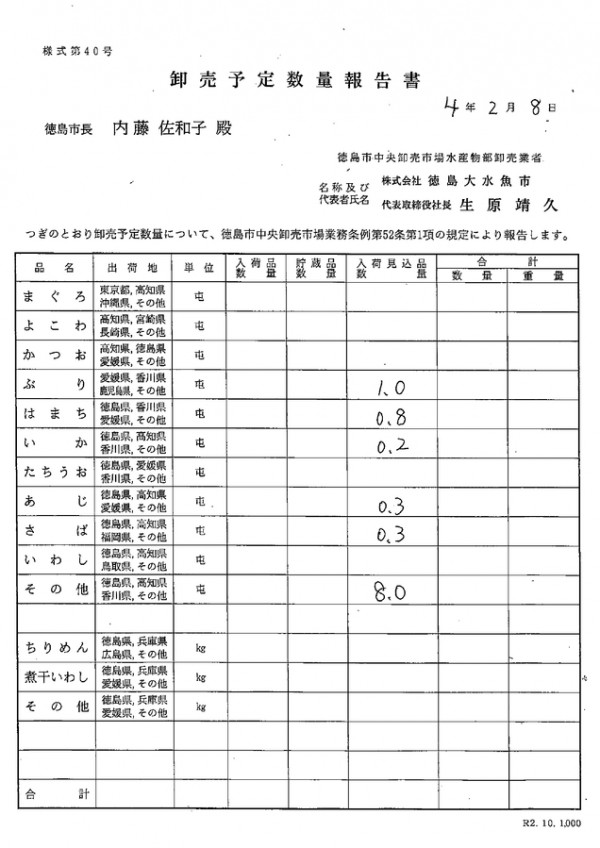 様式第40号
卸売予定数量報告書
4年2月8日
徳島市長 内藤 佐和子 殿
徳島市中央卸売市場水産物部卸売業者
名称及び 株式会社 徳島大水魚市
代表者氏名 代表取締役社長 生原靖久
つぎのとおり卸売予定数量について、徳島市中央卸売市場業務条例第52条第1項の規定により報告します。
品名 出荷地 単位 入荷品数量 貯蔵品数量 入荷見込品数量 合計 数量 重量
まぐろ 東京都, 高知県 沖縄県, その他 屯
よこわ 高知県, 宮崎県 長崎県, その他 屯
かつお 高知県, 徳島県 愛媛県, その他 屯
ぶり 愛媛県, 香川県 鹿児島県, その他 屯 1.0
はまち 徳島県, 香川県 愛媛県, その他 屯 0.8
いか 徳島県, 高知県 香川県, その他 屯 0.2
たちうお 徳島県, 愛媛県 香川県, その他 屯
あじ 徳島県, 高知県 愛媛県, その他 屯 0.3
さば 徳島県, 高知県 福岡県, その他 屯 0.3
いわし 徳島県, 高知県 鳥取県, その他 屯
その他 徳島県, 高知県 香川県, その他 屯 8.0
ちりめん 徳島県, 兵庫県 広島県, その他 kg
煮干いわし 徳島県, 兵庫県 愛媛県, その他 kg
その他 徳島県, 兵庫県 愛媛県, その他 kg
合計
R2. 10. 1,000